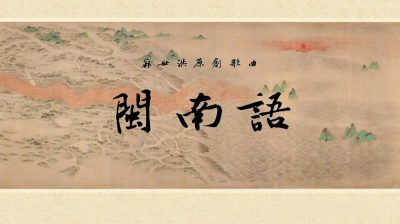 蘇世洪原創歌曲
閩南語